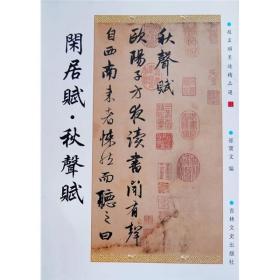 閑居賦·秋聲賦
秋聲賦
歐陽子方夜讀書聞有聲
自西南来者悚然而聽之曰
趙孟頫墨迹精品選
孫寶文 編
吉林文史出版社